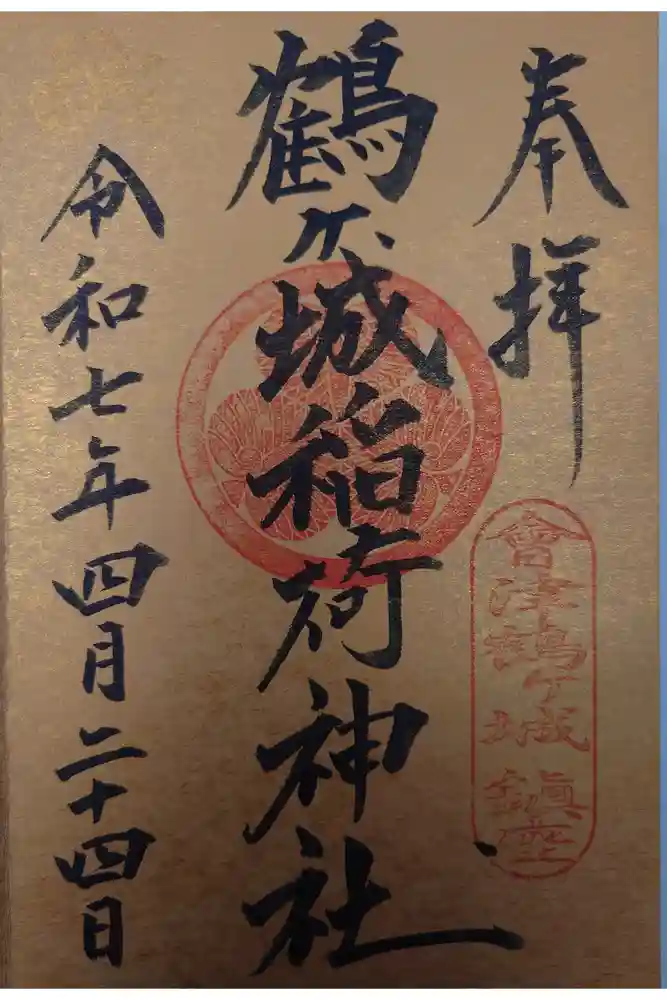 奉拝
會津鶴ヶ城鎮座
鶴ヶ城稲荷神社
令和七年四月二十四日